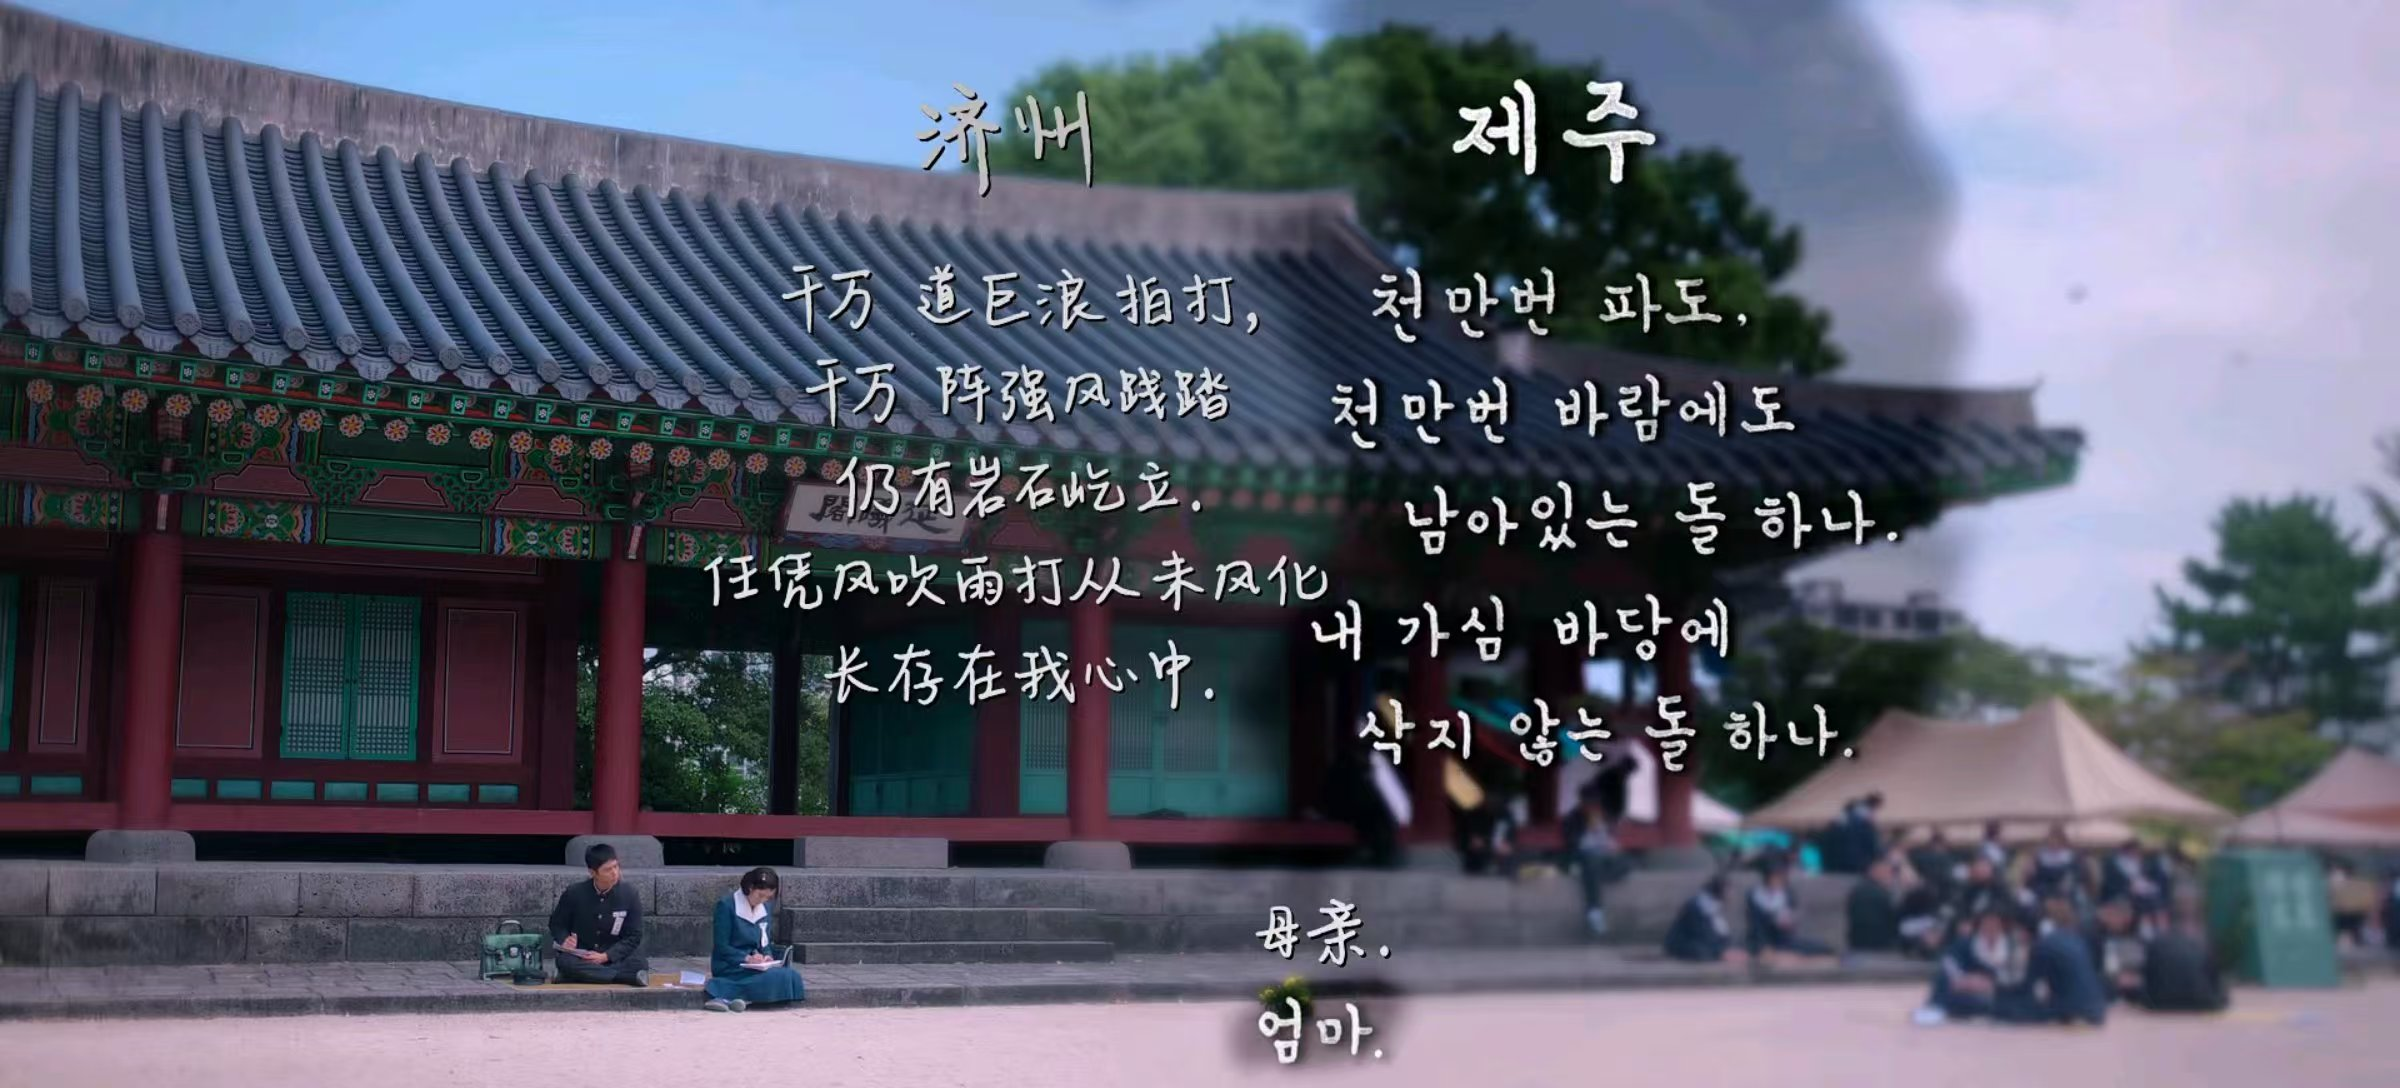 济州
千万 道巨浪拍打,
千万 阵强风践踏
仍有岩石屹立.
任凭风吹雨打从未风化
长存在我心中.
제주
천만번 파도,
천만번 바람에도
남아있는 돌 하나.
내 가심 바당에
삭지 않는 돌 하나.
母亲.
엄마.